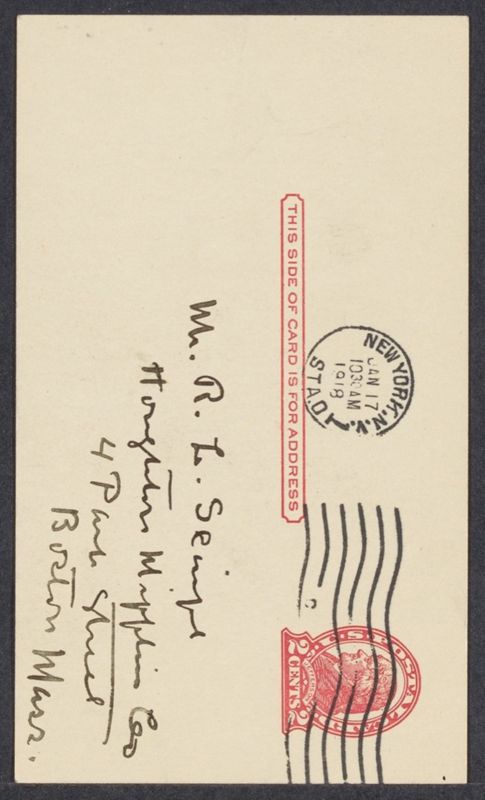 THIS SIDE OF CARD IS FOR ADDRESS
NEW YORK, N.Y.
JAN 17
10 30 AM
1918
STA. O
U.S. POSTAL CARD
2 CENTS 2
Mr. R. L. Scaife
Houghton Mifflin Co
4 Park Street
Boston Mass.